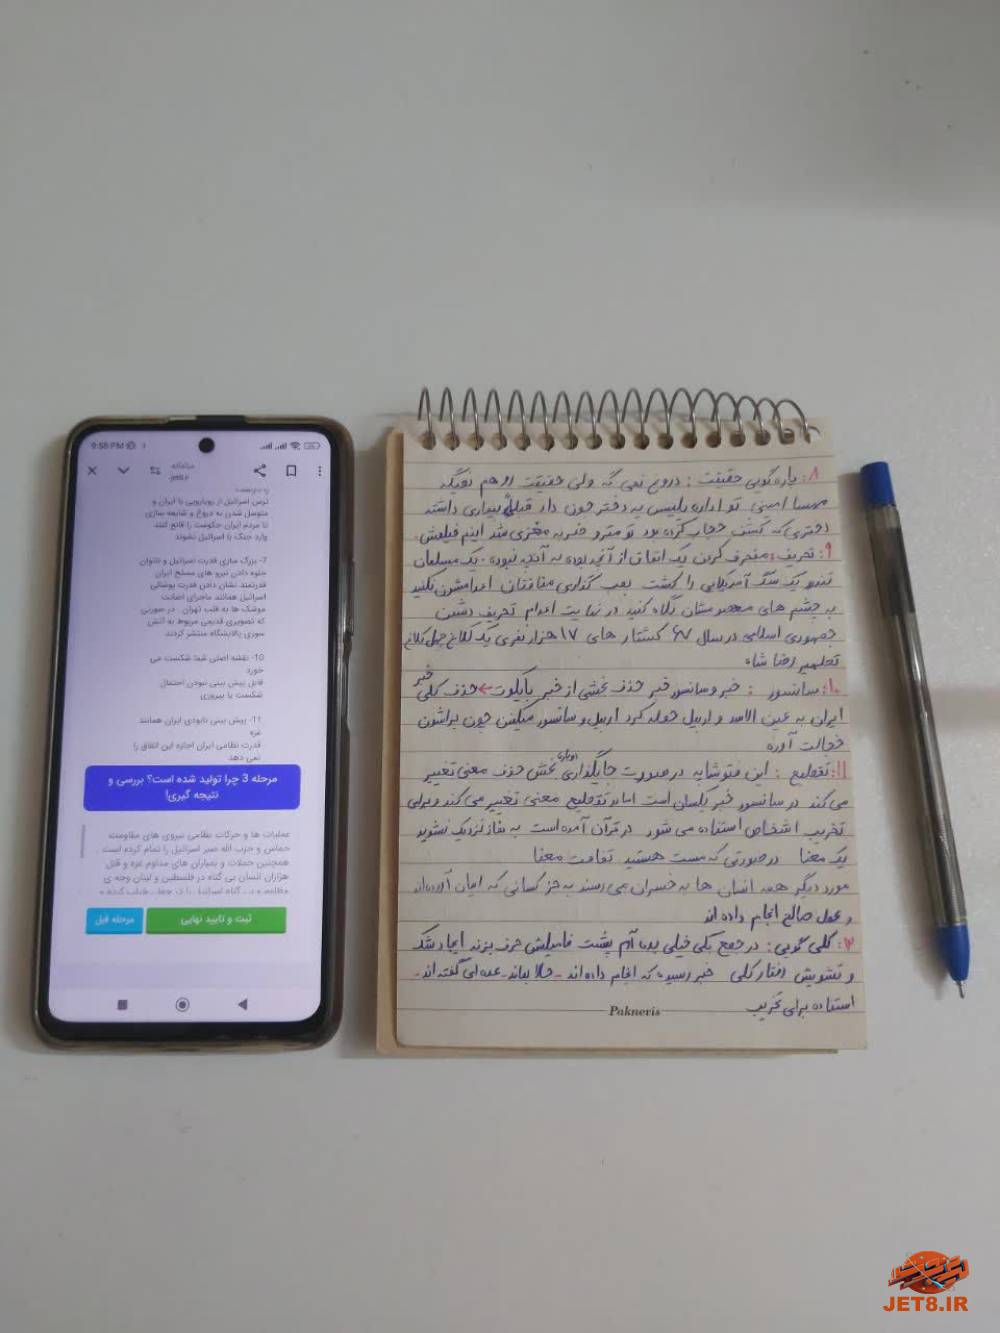 9:55 PM
سامانه
jet8.ir
ترس اسرائیل از رویارویی با ایران و
متوسل شدن به دروغ و شایعه سازی
تا مردم ایران حکومت را قانع کنند
وارد جنگ با اسرائیل نشوند
7- بزرگ سازی قدرت اسرائیل و ناتوان
جلوه دادن نیرو های مسلح ایران
قدرتمند نشان دادن قدرت پوشالی
اسرائیل همانند ماجرای اصابت
موشک ها به قلب تهران . در صورتی
که تصویری قدیمی مربوط به آتش
سوزی پالایشگاه منتشر کردند
10- نقشه اصلی شما شکست می
خورد
قابل پیش بینی نبودن احتمال
شکست یا پیروزی
11- پیش بینی نابودی ایران همانند
غزه
قدرت نظامی ایران اجازه این اتفاق را
نمی دهد
مرحله 3 چرا تولید شده است؟ بررسی و
نتیجه گیری!
عملیات ها و حرکات نظامی نیروی های مقاومت
حماس و حزب الله صبر اسرائیل را تمام کرده است .
همچنین حملات و بمباران های مداوم غزه و قتل
هزاران انسان بی گناه در فلسطین و لبنان وجه ی
ثبت و تایید نهایی
مرحله قبل
۸: پاره گویی حقیقت : دروغ نمی گه ولی حقیقت رو هم نمیگه
مهسا امینی تو اداره پلیس یه دختر جون داد قبلاً بیماری داشته
دختری که کشف حجاب کرده بود تو مترو ضربه مغزی شد اینم فیلمش.
۹: تحریف: منحرف کردن یک اتفاق از آنچه بوده به آنچه نبوده . یک مسلمان
تندرو یک سگ آمریکایی را کشت بمب گذاری منافقان اعدامشون نکنید
به چشم های معصومشان نگاه کنید در نهایت اعدام تحریف دشمن
جمهوری اسلامی در سال ۶۷ کشتار های ۱۷ هزار نفری یک کلاغ چهل کلاغ
تطهیر رضا شاه
۱۰: سانسور : خبر و سانسور خبر حذف بخشی از خبر بایکوت ← حذف کلی خبر
ایران به عین الاسد و اربیل حمله کرد اربیل و سانسور میکنن چون براشون
خجالت آوره
۱۱: تقطیع : این فتوشاپه در صورت جایگذاری دوباره بخش حذف معنی تغییر
می کند در سانسور خبر یکسان است اما در تقطیع معنی تغییر می کند و برای
تخریب اشخاص استفاده می شود در قرآن آمده است به نماز نزدیک نشوید
یک معنا در صورتی که مست هستید تفاوت معنا
مورد دیگر همه انسان ها به خسران می رسند به جز کسانی که ایمان آورده اند
و عمل صالح انجام داده اند
کلی گویی : در جمع یکی خیلی بده آم پشت فامیلش حرف بزند ایجاد شک
و تشویش افکار کلی خبر رسیده که انجام داده اند - حالا بماند - عده ای گفته اند -
استفاده برای تخریب
Pakneris
JET8.IR